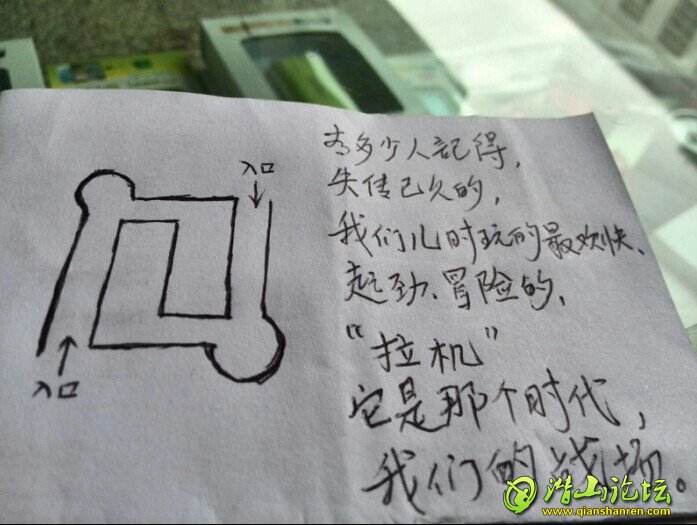 入口
入口
有多少人记得,
失传已久的,
我们儿时玩的最欢快、
起劲、冒险的,
“拉机”
它是那个时代,
我们的战场。
潜山论坛
www.qianshanren.com